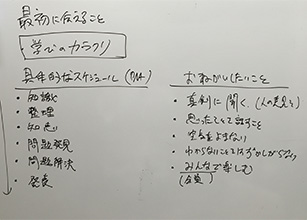 最初に伝えること
・学びのカラクリ
具体的なスケジュール
・知識
・整理
・知恵
・問題発見
・問題解決
・発表
おねがいしたいこと
・真剣に聞く、(人の意見も)
・思ったことを話すこと
・空気をよまない
・わからないことは
・みんなで楽しむ
(全員)